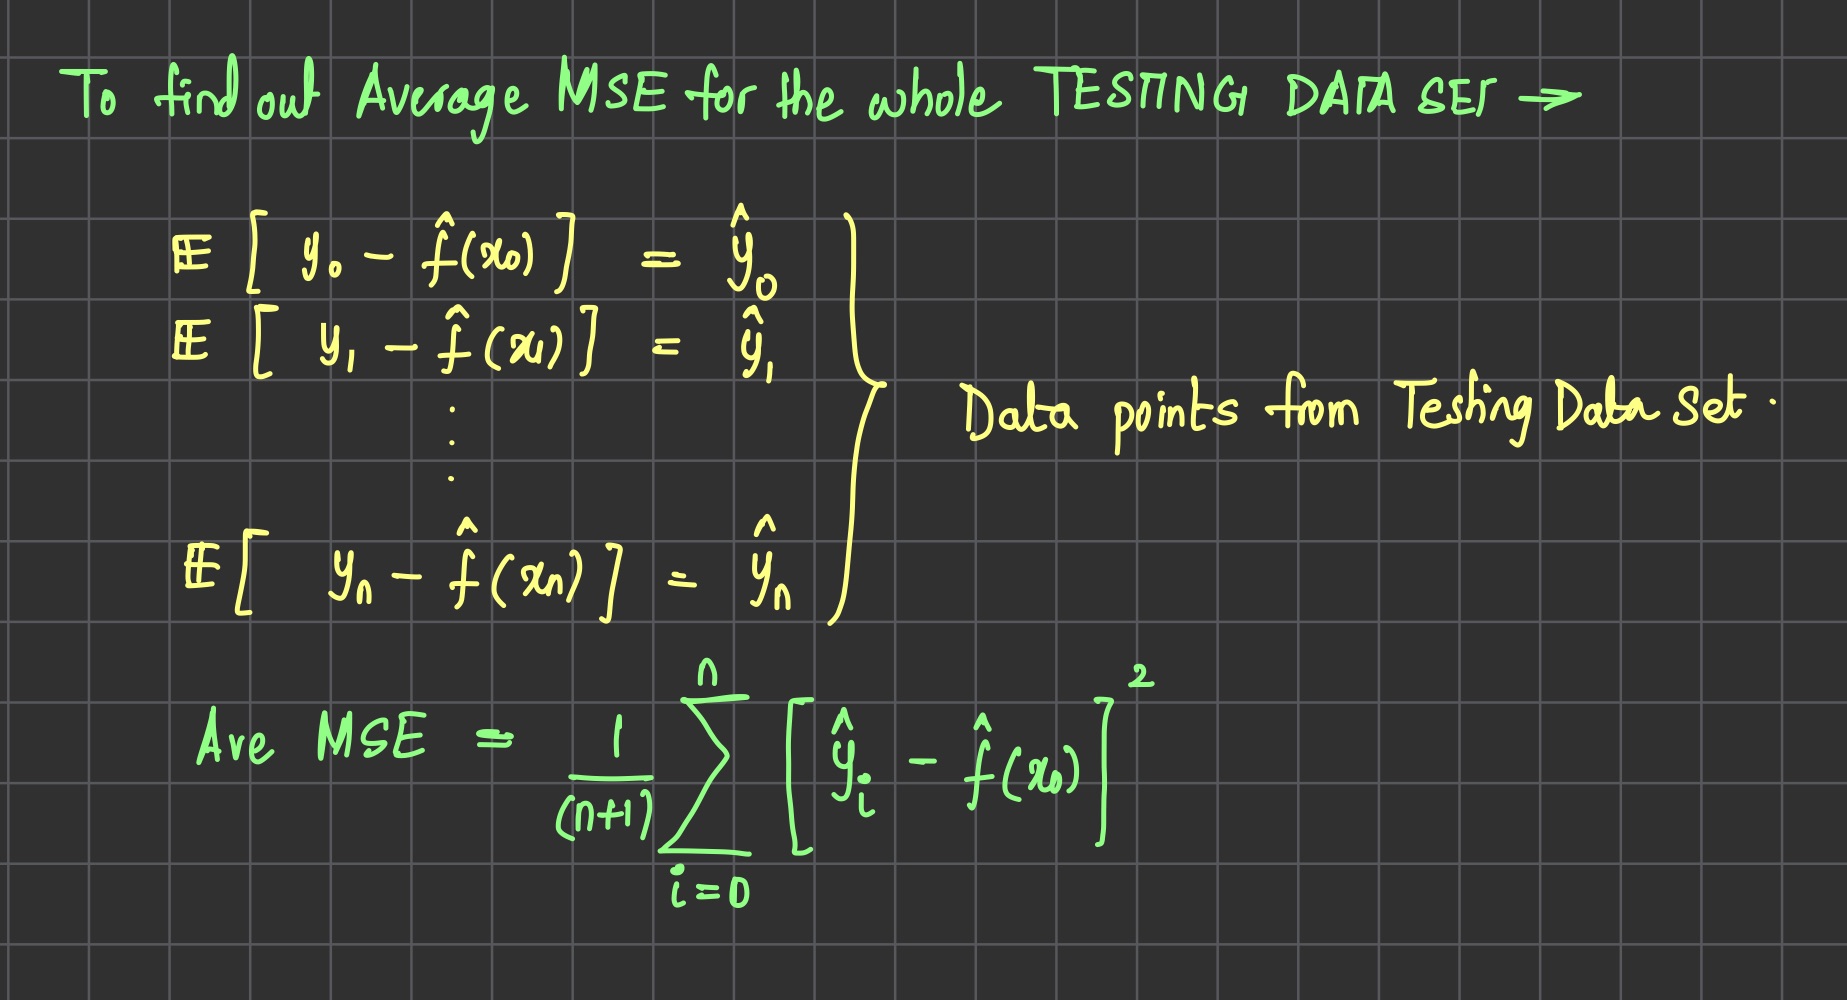 To find out Average MSE for the whole TESTING DATA SET →
𝔼 [ y₀ − f̂(x₀) ] = ŷ₀
𝔼 [ y₁ − f̂(x₁) ] = ŷ₁
⋮
Data points from Testing Data Set.
𝔼 [ yₙ − f̂(xₙ) ] = ŷₙ
Ave MSE = 1/(n+1) ∑_{i=0}^{n} [ ŷᵢ − f̂(x₀) ]²